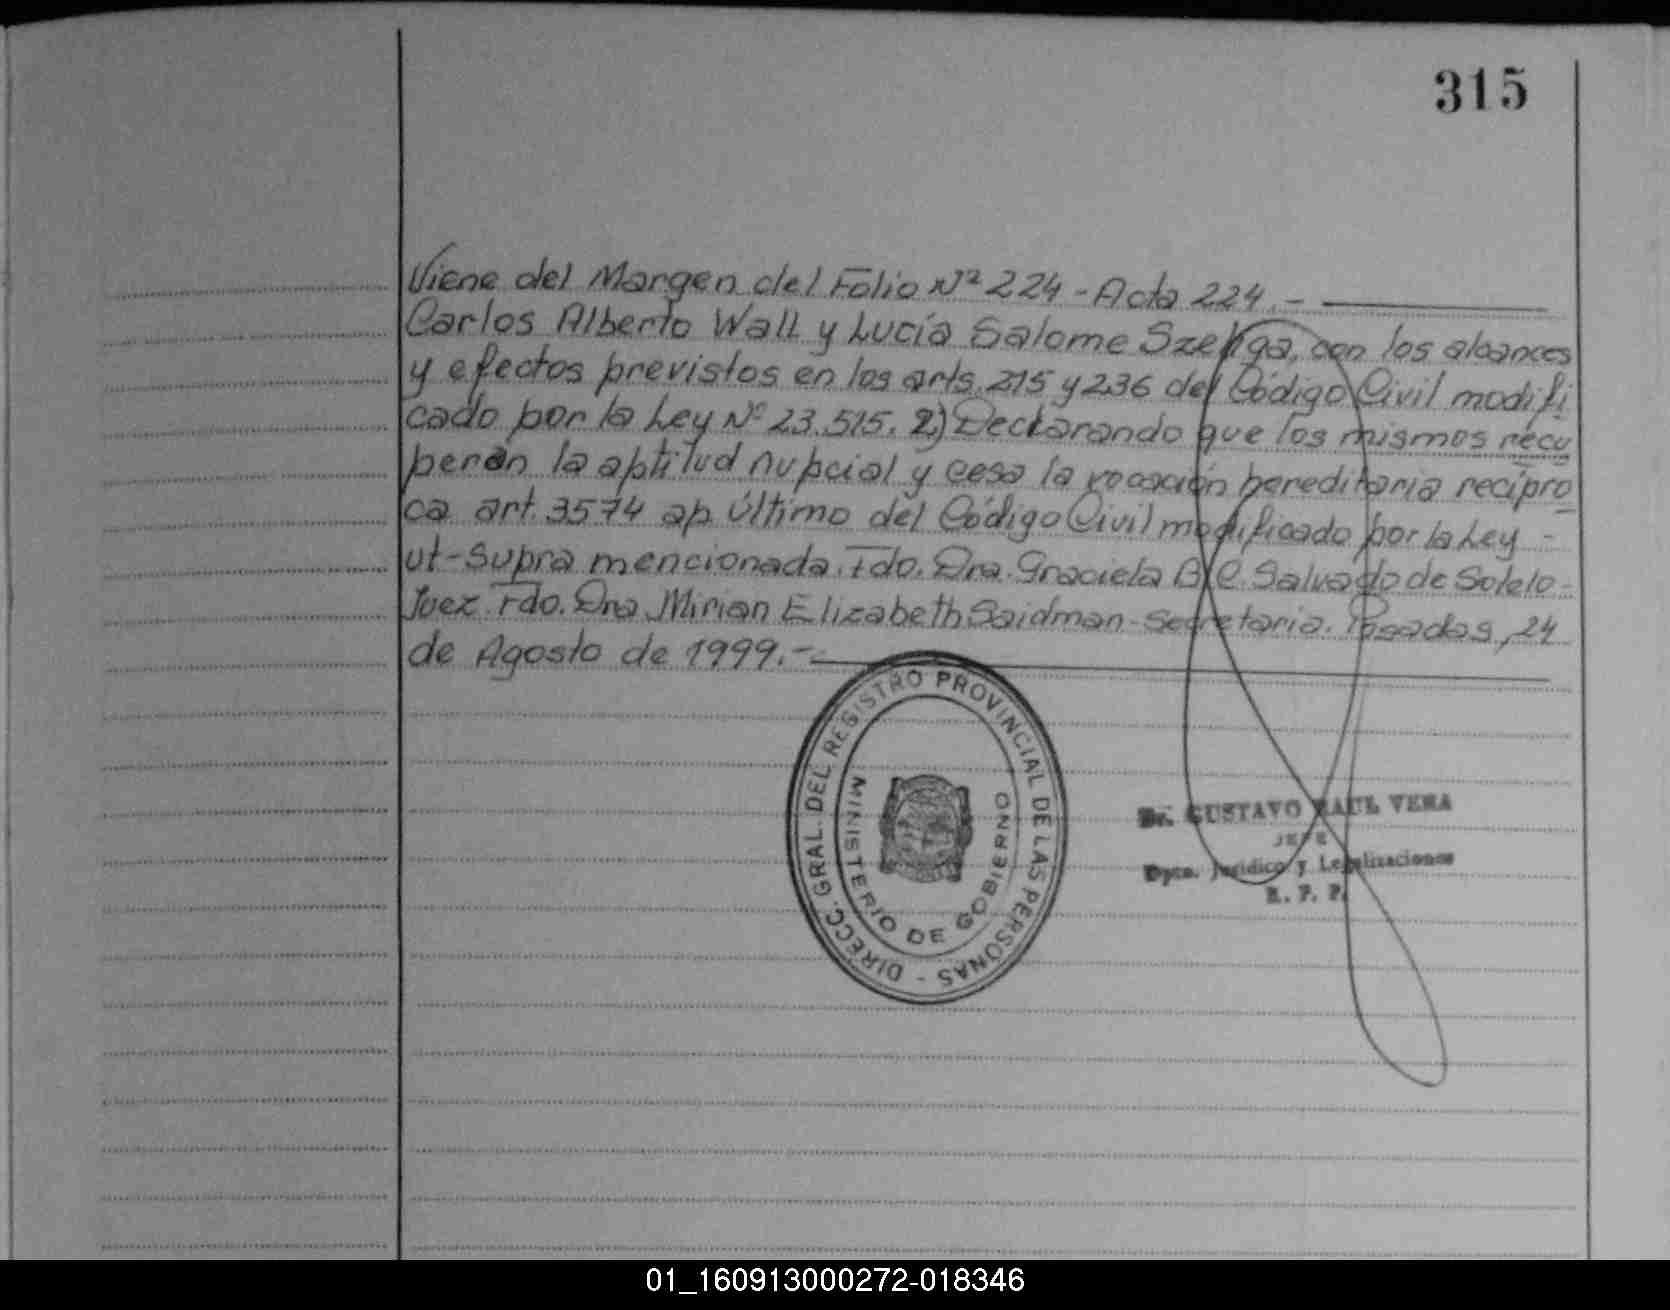 315
Viene del Margen del Folio Nº 224 - Acta 224. -
Carlos Alberto Wall y Lucía Salome Szeliga, con los alcances
y efectos previstos en los arts. 215 y 236 del Código Civil modifi
cado por la Ley Nº 23.515. 2) Declarando que los mismos recu
peran la aptitud nupcial y cesa la vocación hereditaria recípro
ca art. 3574 ap. último del Código Civil modificado por la Ley -
ut-supra mencionada. Fdo. Dra. Graciela B. C. Salvado de Sotelo -
Juez. Fdo. Dra Mirian Elizabeth Saidman - Secretaria. Posadas, 24
de Agosto de 1999. -
DIRECC. GRAL. DEL REGISTRO PROVINCIAL DE LAS PERSONAS -
MINISTERIO DE GOBIERNO
Dr. GUSTAVO RAUL VERA
JEFE
Dpto. Jurídico y Legalizaciones
R. P. P.
01_160913000272-018346